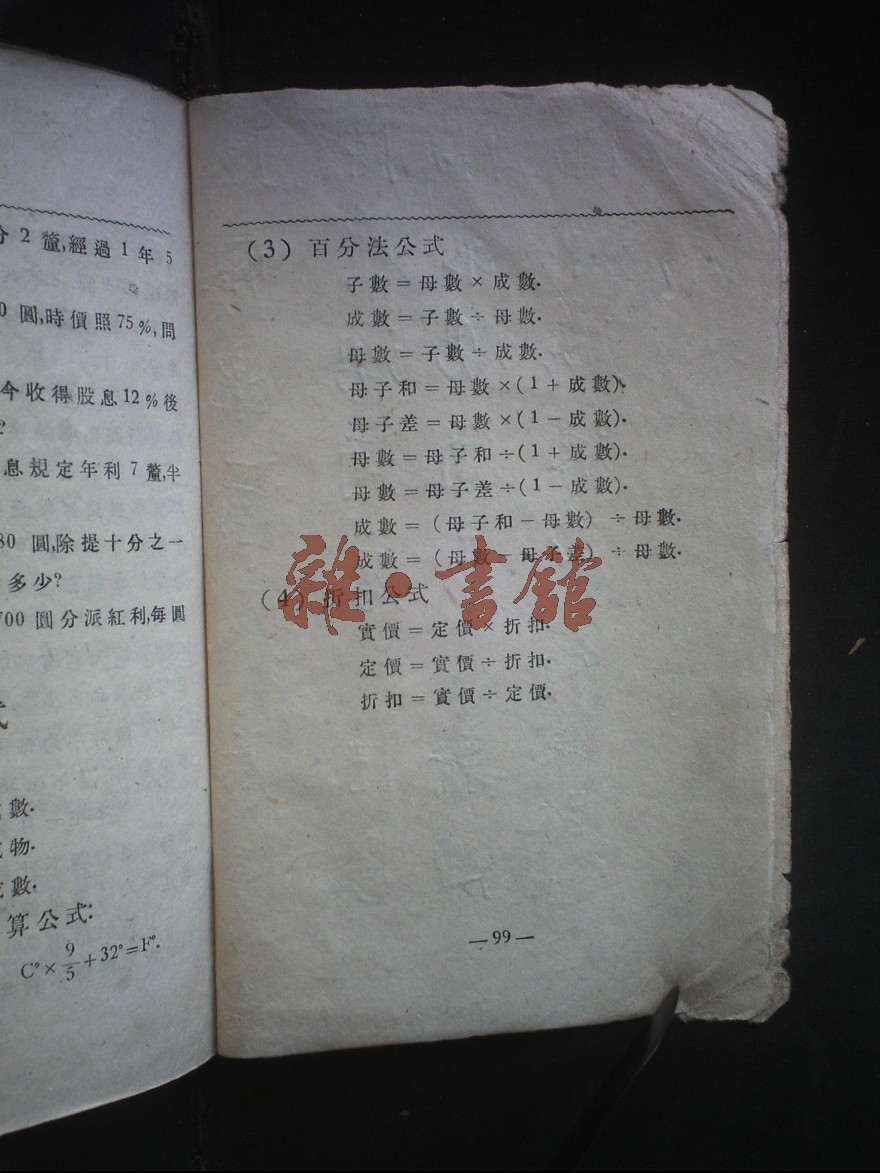 分 2 釐,經過 1 年 5
0 圓,時價照 75%,問
今收得股息 12%後
?
息規定年利 7 釐,半
80 圓,除提十分之一
多少?
700 圓分派紅利,每圓
式
數.
物.
數.
算公式:
C°×9/5+32°=F°.
(3) 百分法公式
子數=母數×成數.
成數=子數÷母數.
母數=子數÷成數.
母子和=母數×(1+成數).
母子差=母數×(1-成數).
母數=母子和÷(1+成數).
母數=母子差÷(1-成數).
成數=(母子和-母數)÷母數.
成數=(母數-母子差)÷母數.
(4) 折扣公式
實價=定價×折扣.
定價=實價÷折扣.
折扣=實價÷定價.
—99—
雜·書館